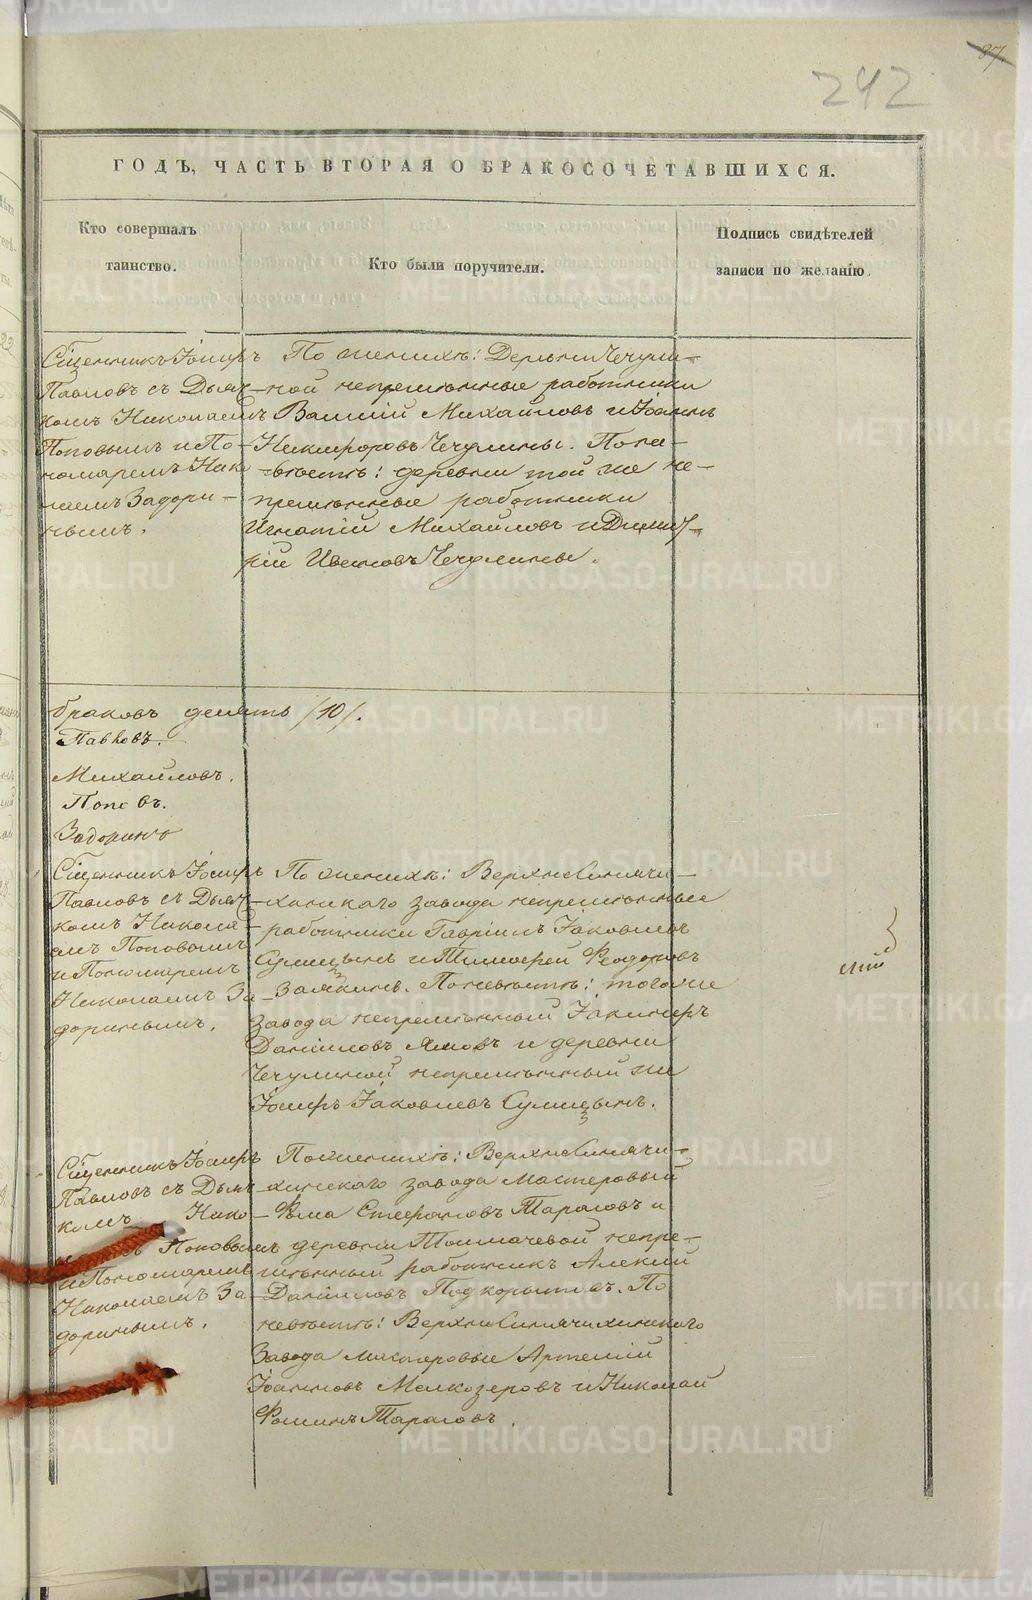 87.
242
ГОДЪ, ЧАСТЬ ВТОРАЯ О БРАКОСОЧЕТАВШИХСЯ.
Кто совершалъ
таинство.
Кто были поручители.
Подпись свидѣтелей
записи по желанію.
Сщенникъ Іосифъ
Павловъ съ Дьяч-
комъ Николаемъ
Поповымъ и По-
номаремъ Нико-
лаемъ Задори-
нымъ.
По женихѣ: Деревни Чечули-
ной непремѣнные работники
Василій Михайловъ и Іоаннъ
Никифоровъ Чечулины. По не-
вѣстѣ: деревни той же не-
премѣнные работники
Игнатій Михайловъ и Димит-
рій Ивановъ Чечулины.
браковъ десять /10/.
Павловъ.
Михайловъ.
Поповъ.
Задоринъ
Сщенникъ Іосифъ
Павловъ съ Дьяч-
комъ Никола-
емъ Поповымъ
и Пономаремъ
Николаемъ За-
доринымъ.
По женихѣ: Верхнесинячи-
хинскаго завода непремѣнные
работники Гавріилъ Іаковлевъ
и Тимофей Феодоровъ
Замякинъ. По невѣстѣ: того же
завода непремѣнный Іакинфъ
Даниловъ Ямовъ и деревни
Чечулиной непремѣнный же
Іосифъ Іаковлевъ
Сщенникъ Іосифъ
Павловъ съ Дьяч-
комъ Нико-
Поповымъ
и Пономаремъ
Николаемъ За-
доринымъ.
По женихѣ: Верхнесинячи-
хинскаго завода Мастеровый
Фома Стефановъ Тарасовъ и
деревни Толмачевой непре-
мѣнный работникъ Алексій
Даниловъ Подкорытовъ. По
невѣстѣ: Верхнесинячихинскаго
Завода мастеровые Артемій
Іоанновъ Мелкозеровъ и Николай
Фоминъ Тарасовъ.
METRIKI.GASO-URAL.RU